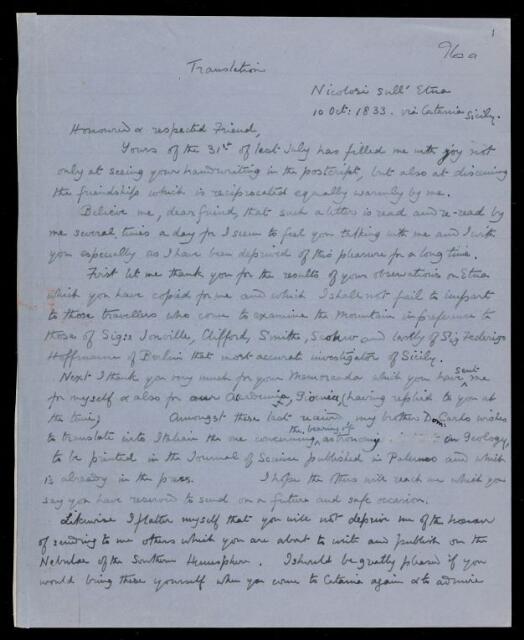 1
960 a
Translation
Nicolosi sull' Etna
10 Oct: 1833. via Catania Sicily.
Honoured & respected Friend,
Yours of the 31st of last July has filled me with joy not
only at seeing your handwriting in the postscript, but also at discerning
the friendship which is reciprocated equally warmly by me.
Believe me, dear friend, that such a letter is read and re-read by
me several times a day for I seem to feel you talking with me and I with
you especially as I have been deprived of this pleasure for a long time.
First let me thank you for the results of your observations on Etna
which you have copied for me and which I shall not fail to impart
to those travellers who come to examine the Mountain in preference to
those of Sigs: Jonville, Clifford, Smith, and lastly of Sig Federigo
Hoffmann of Berlin that most accurate investigator of Sicily.
Next I thank you very much for your Memoranda which you have sent me
for myself & also for our Academia, Gioenia, (having replied to you at
the time) Amongst these last named my brother Dom: Carlo wishes
to translate into Italian the one concerning the bearing of astronomy on Geology,
to be printed in the Journal of Science published in Palermo and which
is already in the press. I hope the others will reach me which you
say you have reserved to send on a future and safe occasion.
Likewise I flatter myself that you will not deprive me of the honour
of sending to me others which you are about to write and publish on the
Nebulae of the Southern Hemisphere. I should be greatly pleased if you
would bring these yourself when you come to Catania again & to admire